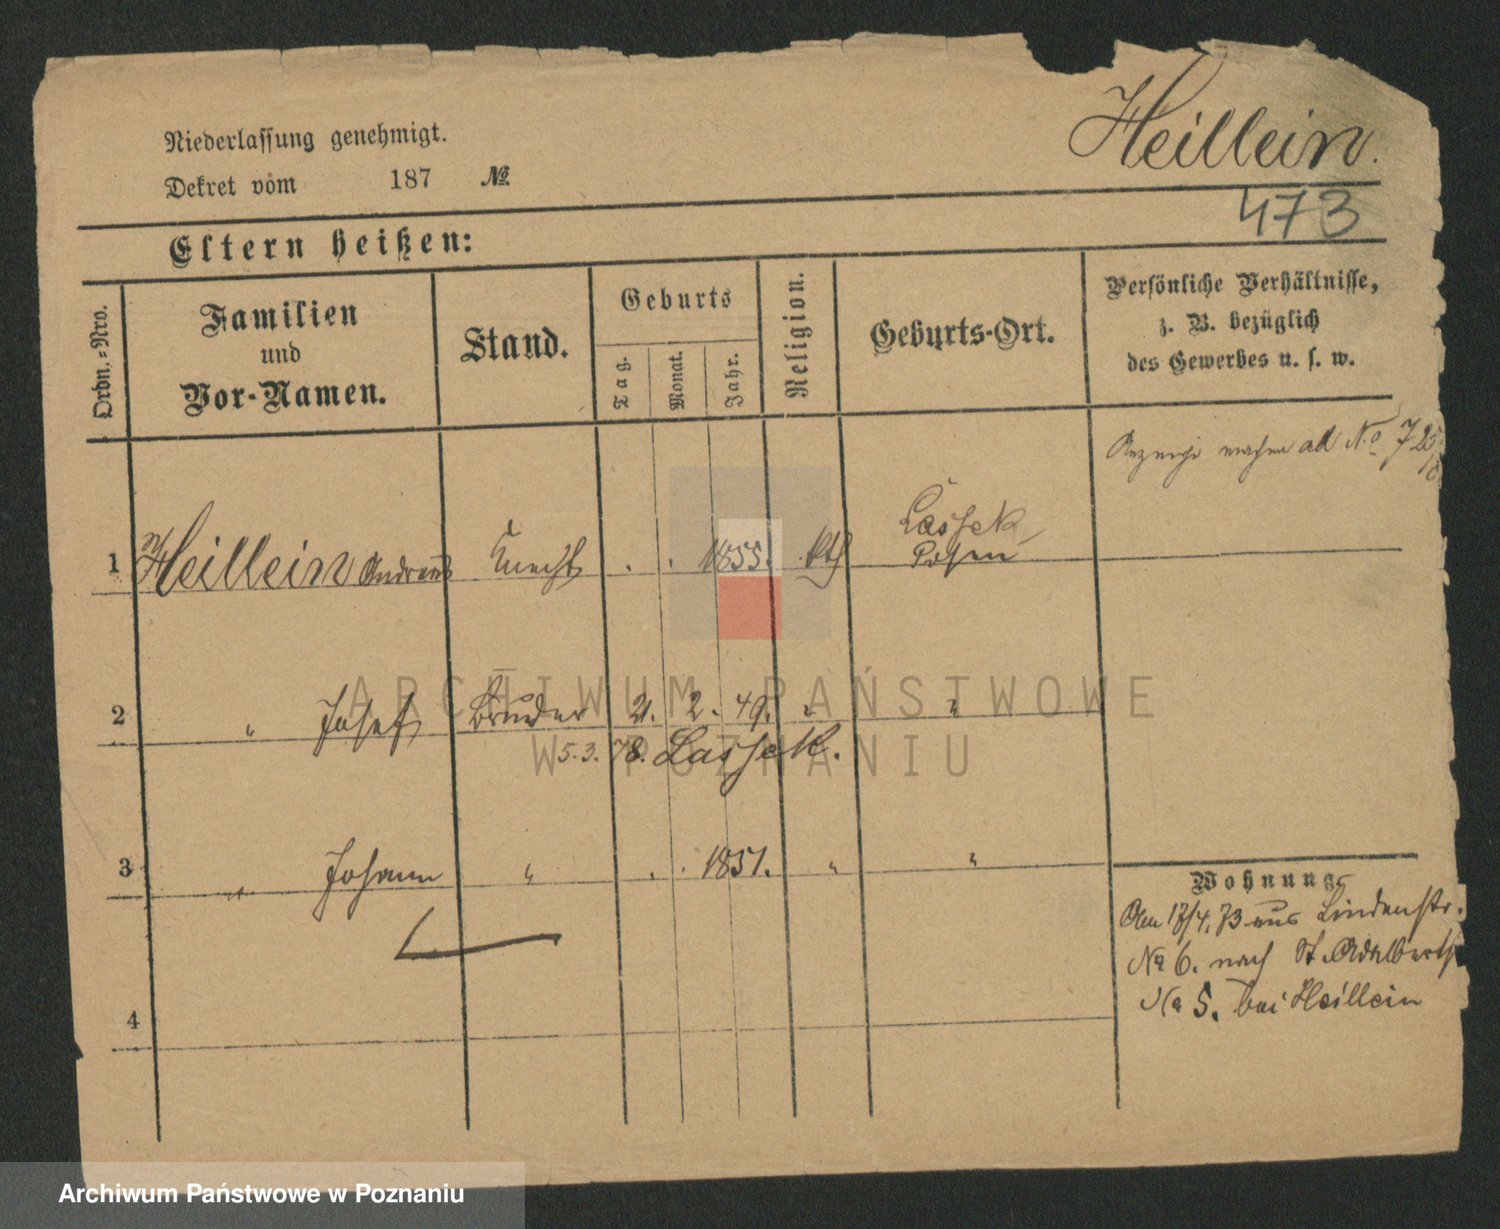 Heillein.
Niederlassung genehmigt.
Dekret vom 187 №
473
Eltern heißen:
Ordn.=Nro.
Familien
und
Vor-Namen.
Stand.
Geburts
Tag.
Monat.
Jahr.
Religion.
Geburts-Ort.
Persönliche Verhältnisse,
z. B. bezüglich
des Gewerbes u. s. w.
ad No 725
1 Heillein Andreas Knecht . . 1855. kth Lassek
Posen
2 " Josef Bruder 21. 2. 49. " "
5.3.78. Lassek.
3 " Johann " . . 1851. " "
4
Wohnung.
Am 17/4.73 aus Lindenstr.
No 6. nach St. Adalbertst
No 5. bei Heillein
ARCHIWUM PAŃSTWOWE
W POZNANIU
Archiwum Państwowe w Poznaniu